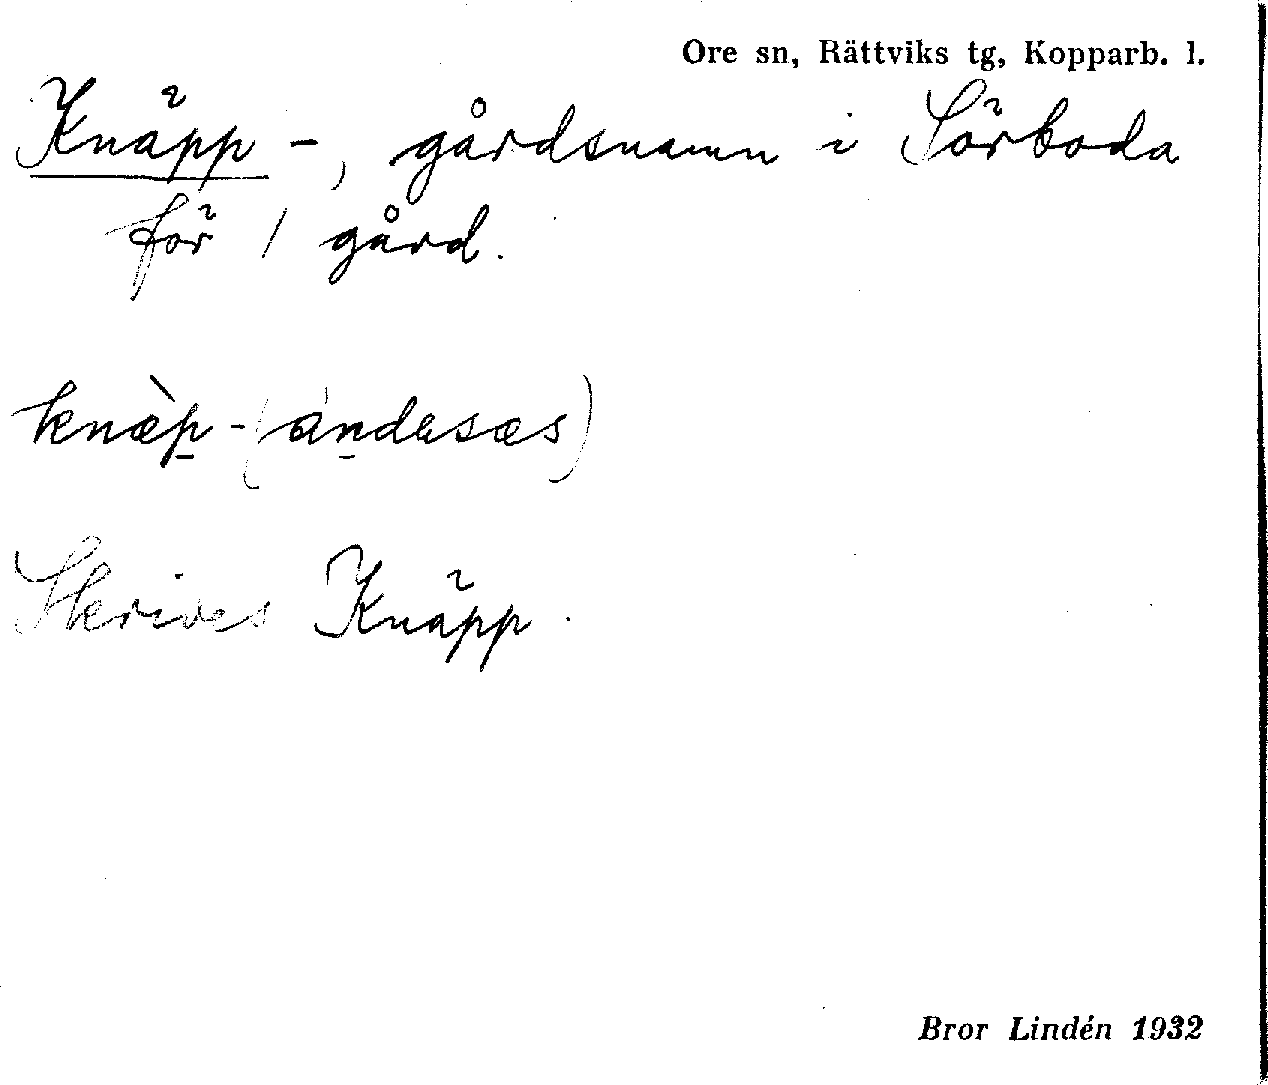 Ore sn, Rättviks tg, Kopparb. l.
Knäpp -, gårdsnamn i Sörboda
för 1 gård.
knæ̀p̲ - (án̲dəsæs)
Skrives Knäpp.
Bror Lindén 1932